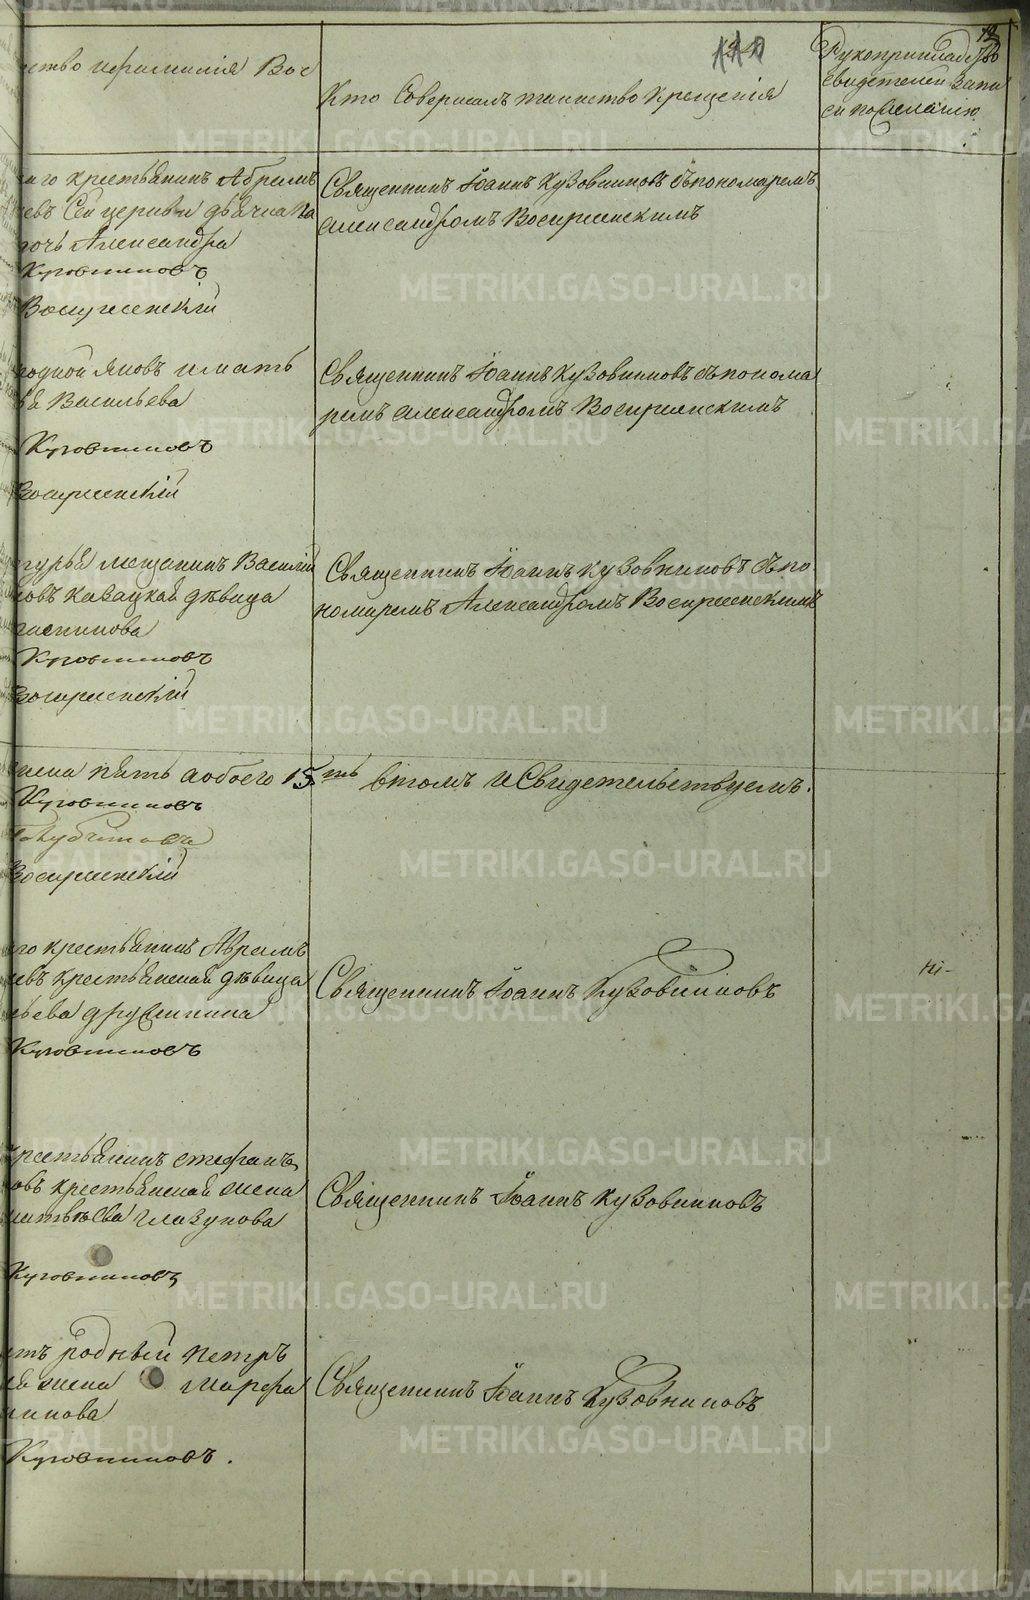 110
12
ство и фамилія Вос
Кто совершалъ таинство крещенія
Рукоприкладство
свидетелей запи
си по желанію
аго крестьянинъ Абрамъ
евъ сей церкви дьячка На
дочь Александра
Кузовниковъ
Воскресенскій
Священникъ Іоаннъ Кузовниковъ съ пономаремъ
Александромъ Воскресенскимъ
родной Яковъ и мать
ва Васильева
Кузовниковъ
Воскресенскій
Священникъ Іоаннъ Кузовниковъ съ понома
ремъ Александромъ Воскресенскимъ
мещанинъ Василій
овъ девица
Кузовниковъ
Воскресенскій
Священникъ Іоаннъ Кузовниковъ съ по
номаремъ Александромъ Воскресенскимъ
пять а обоего 15ть въ томъ и свидетельствуемъ.
Кузовниковъ
Голубчиковъ
Воскресенскій
го крестьянинъ Аврамъ
евъ крестьянская девица
ьева Дружинина
Кузовниковъ
Священникъ Іоаннъ Кузовниковъ
крестьянинъ Стефанъ
овъ крестьянская жена
Глазунова
Кузовниковъ
Священникъ Іоаннъ Кузовниковъ
родный Петръ
жена Марфа
Кузовниковъ.
Священникъ Іоаннъ Кузовниковъ
METRIKI.GASO-URAL.RU